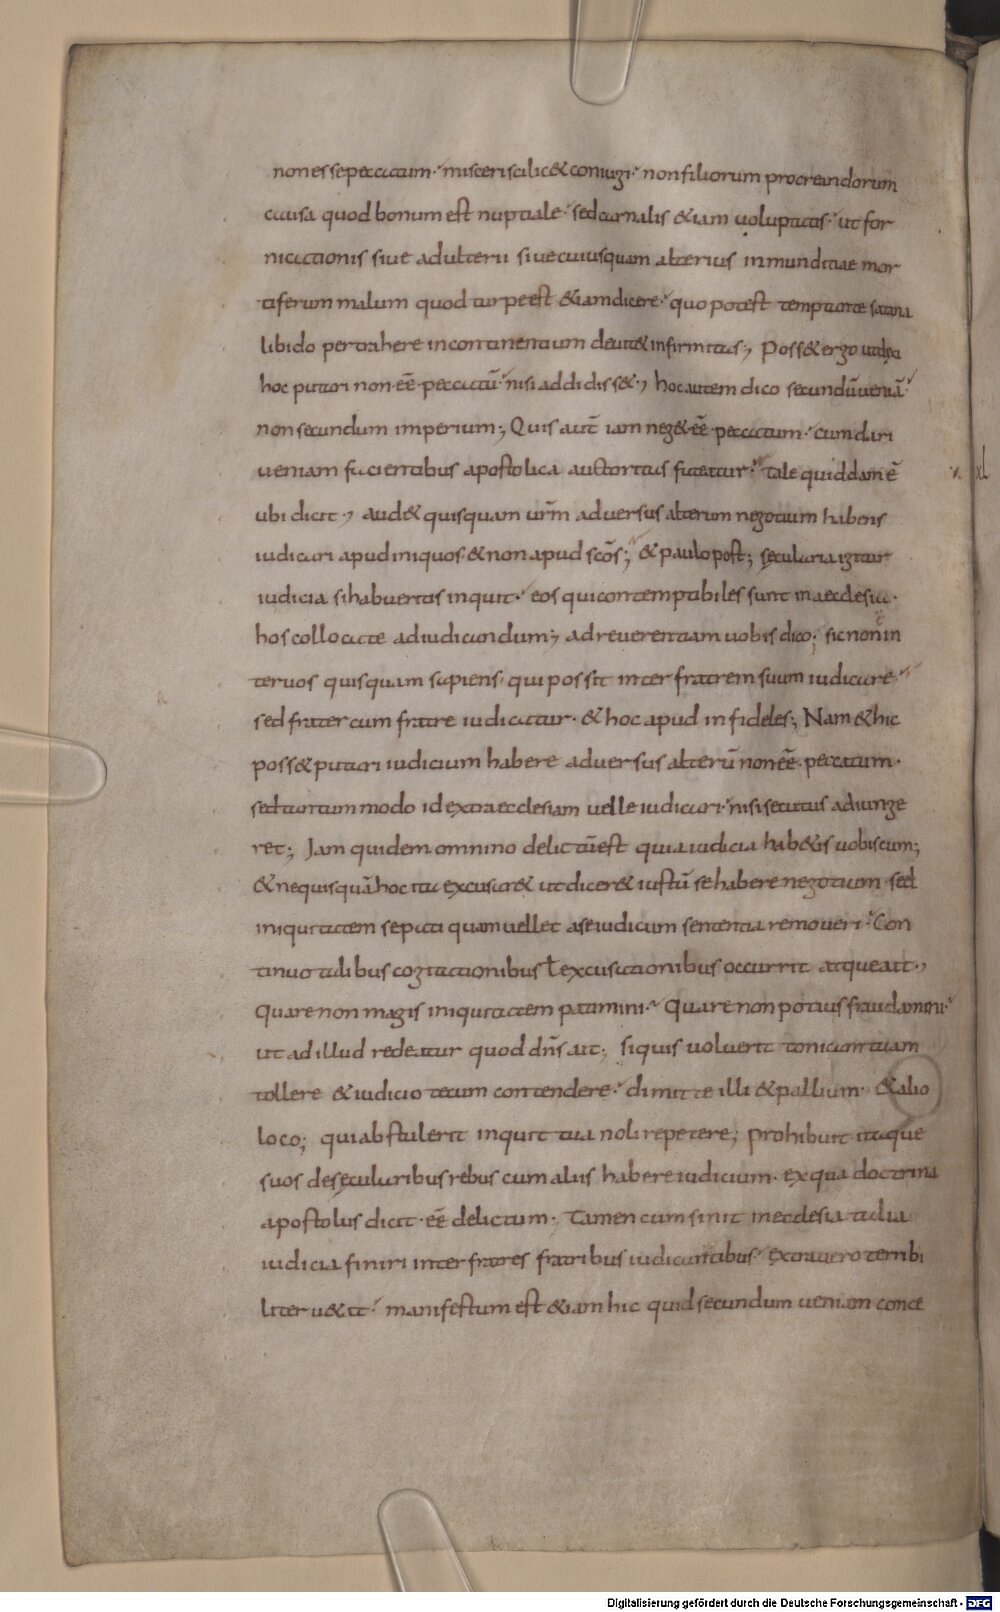 non esse peccatum · misceri scilic& coniugi · non filiorum procreandorum
causa quod bonum est nuptiale · sed carnalis &iam uoluptatis · ut for
nicationis siue adulterii siue cuiusquam alterius inmunditiae mor
tiferum malum quod turpe est &iam dicere · quo potest temptante satana
libido pertrahere incontinentium deuit& infirmitas ; Poss& ergo
hoc putari non eē peccatū · nisi addidiss& ; hoc autem dico secundū ueniā ·
non secundum imperium ; Quis aut̄ iam neg& eē peccatum · cum dari
ueniam facientibus apostolica auctoritas fateatur · Tale quiddam ē
ubi dicit ; aud& quisquam urm̄ aduersus alterum negotium habens
iudicari apud iniquos & non apud scōs ; & paulo post ; sęcularia igitur
iudicia si habueritis inquit · eos qui contemptibiles sunt in aecclesia ·
hos collocate ad iudicandum ; ad reuerentiam uobis dico ; sic non ē in
ter uos quisquam sapiens · qui possit inter fratrem suum iudicare
sed frater cum fratre iudicatur · & hoc apud infideles ; Nam & hic
poss& putari iudicium habere aduersus alterū non eē peccatum ·
sed tantummodo id extra ecclesiam uelle iudicari · nisi secutus adiunge
ret ; Iam quidem omnino delictū est quia iudicia hab&is uobiscum ;
& ne quisquā hoc ita excusar& ut dicer& iustū se habere negotium · sed
iniquitatem se pati quam uellet a se iudicum sententia remoueri · Con
tinuo talibus cogitationibus ł excusationibus occurrit atque ait ;
Quare non magis iniquitatem patimini · Quare non potius fraudamini ·
ut ad illud redeatur quod dn̄s ait ; si quis uoluerit tonicam tuam
tollere & iudicio tecum contendere · dimitte illi & pallium · & alio
loco ; qui abstulerit inquit tua noli repetere ; prohibuit itaque
suos de sęcularibus rebus cum aliis habere iudicium · ex qua doctrina
apostolus dicit · eē delictum ; Tamen cum sinit in ecclesia talia
iudicia finiri inter fratres fratribus iudicantibus · extra uero terribi
liter u&at · manifestum est &iam hic quid secundum ueniam conce